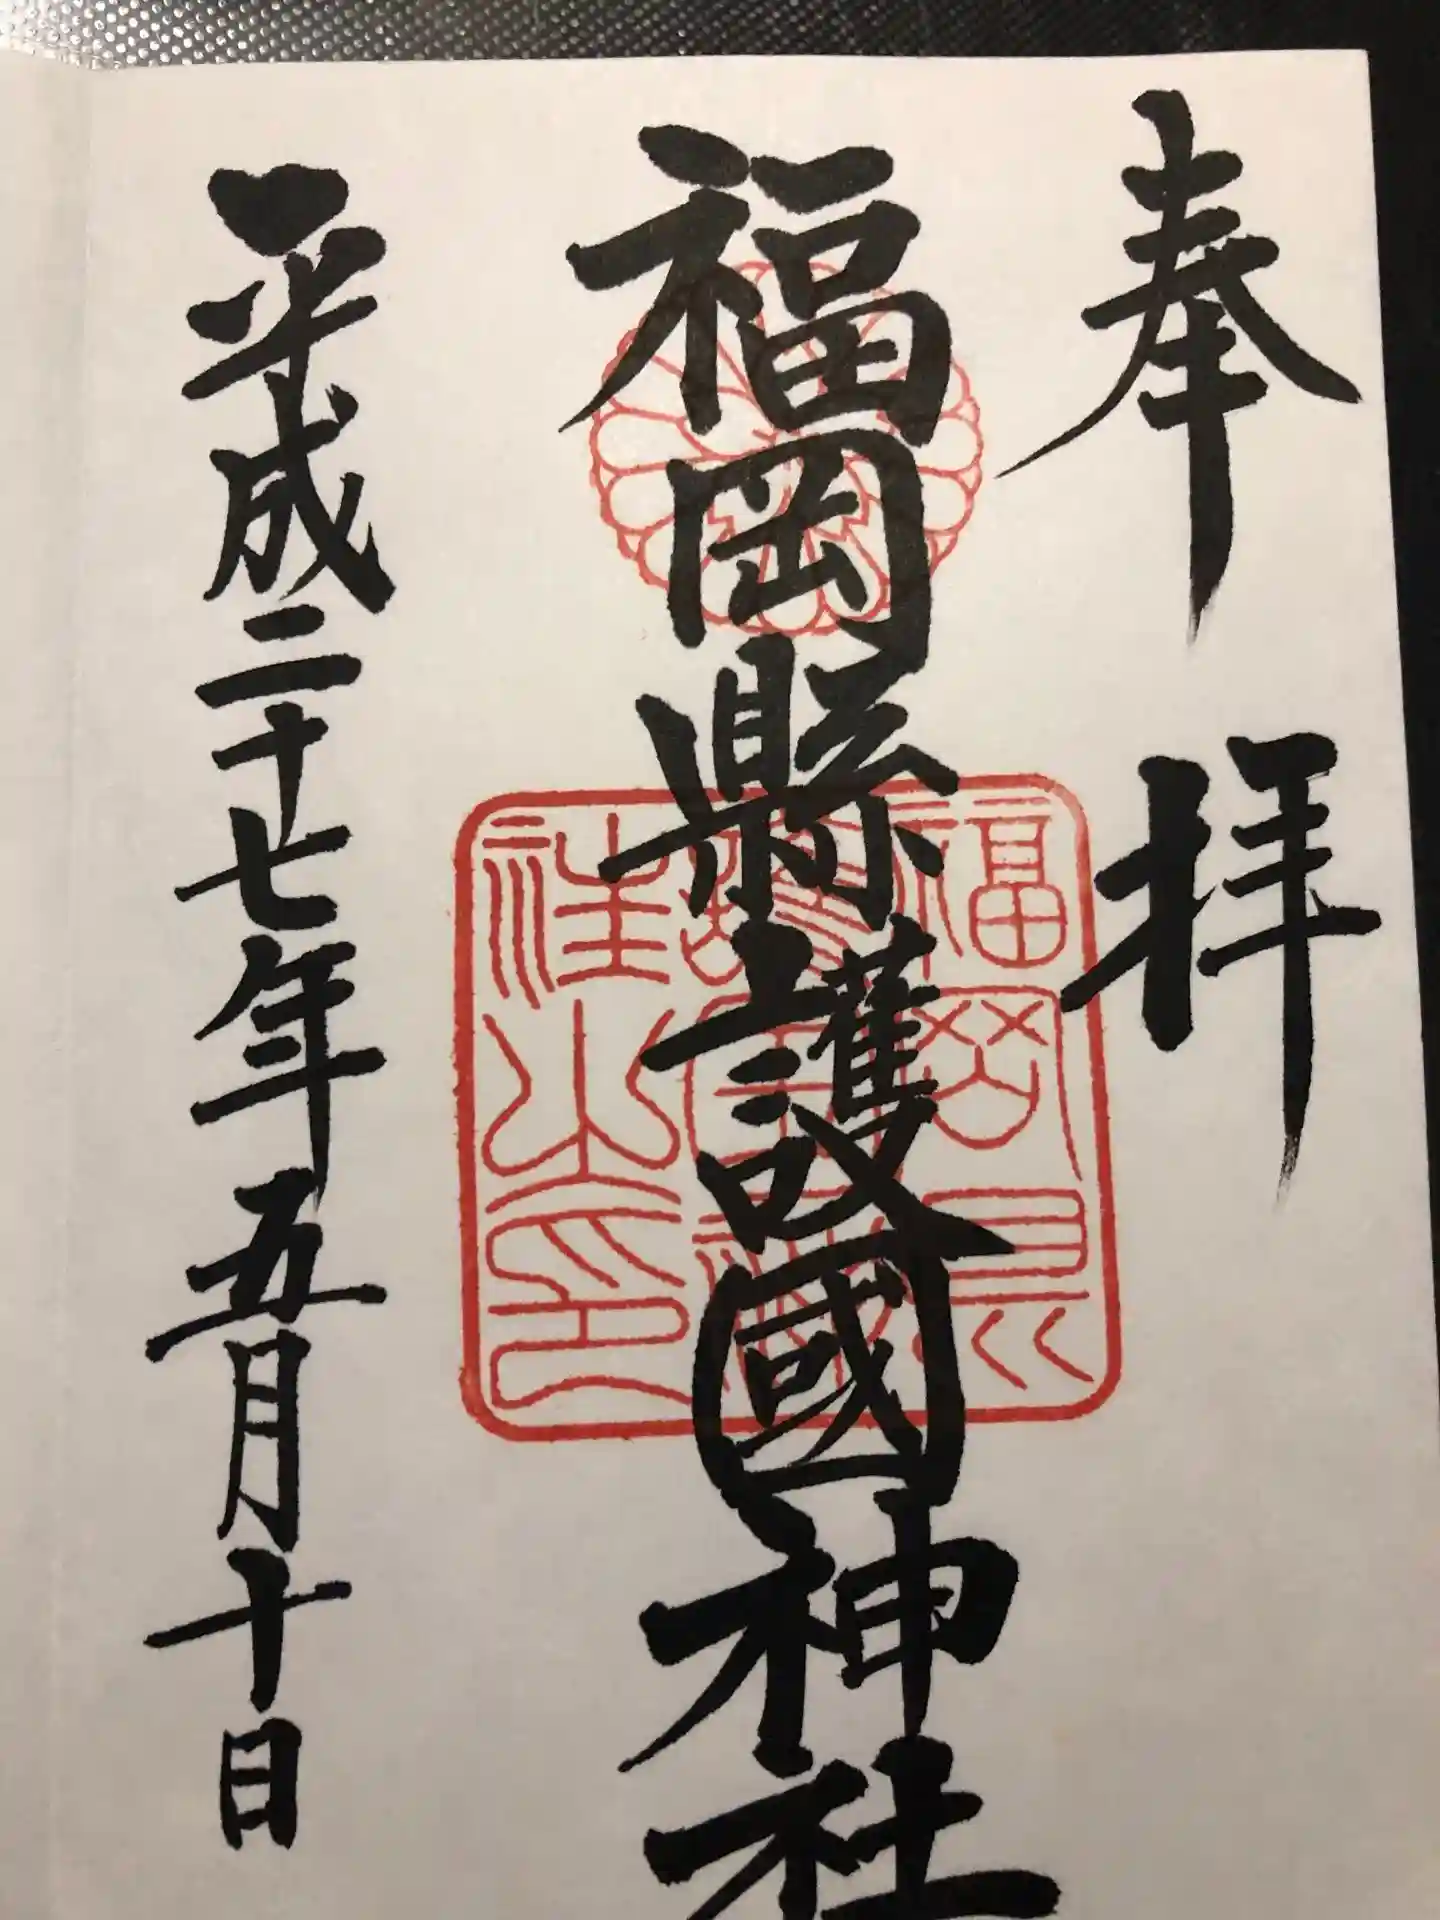 奉拝
福岡縣護國神社
平成二十七年五月十日
福岡縣
護國神
社之印